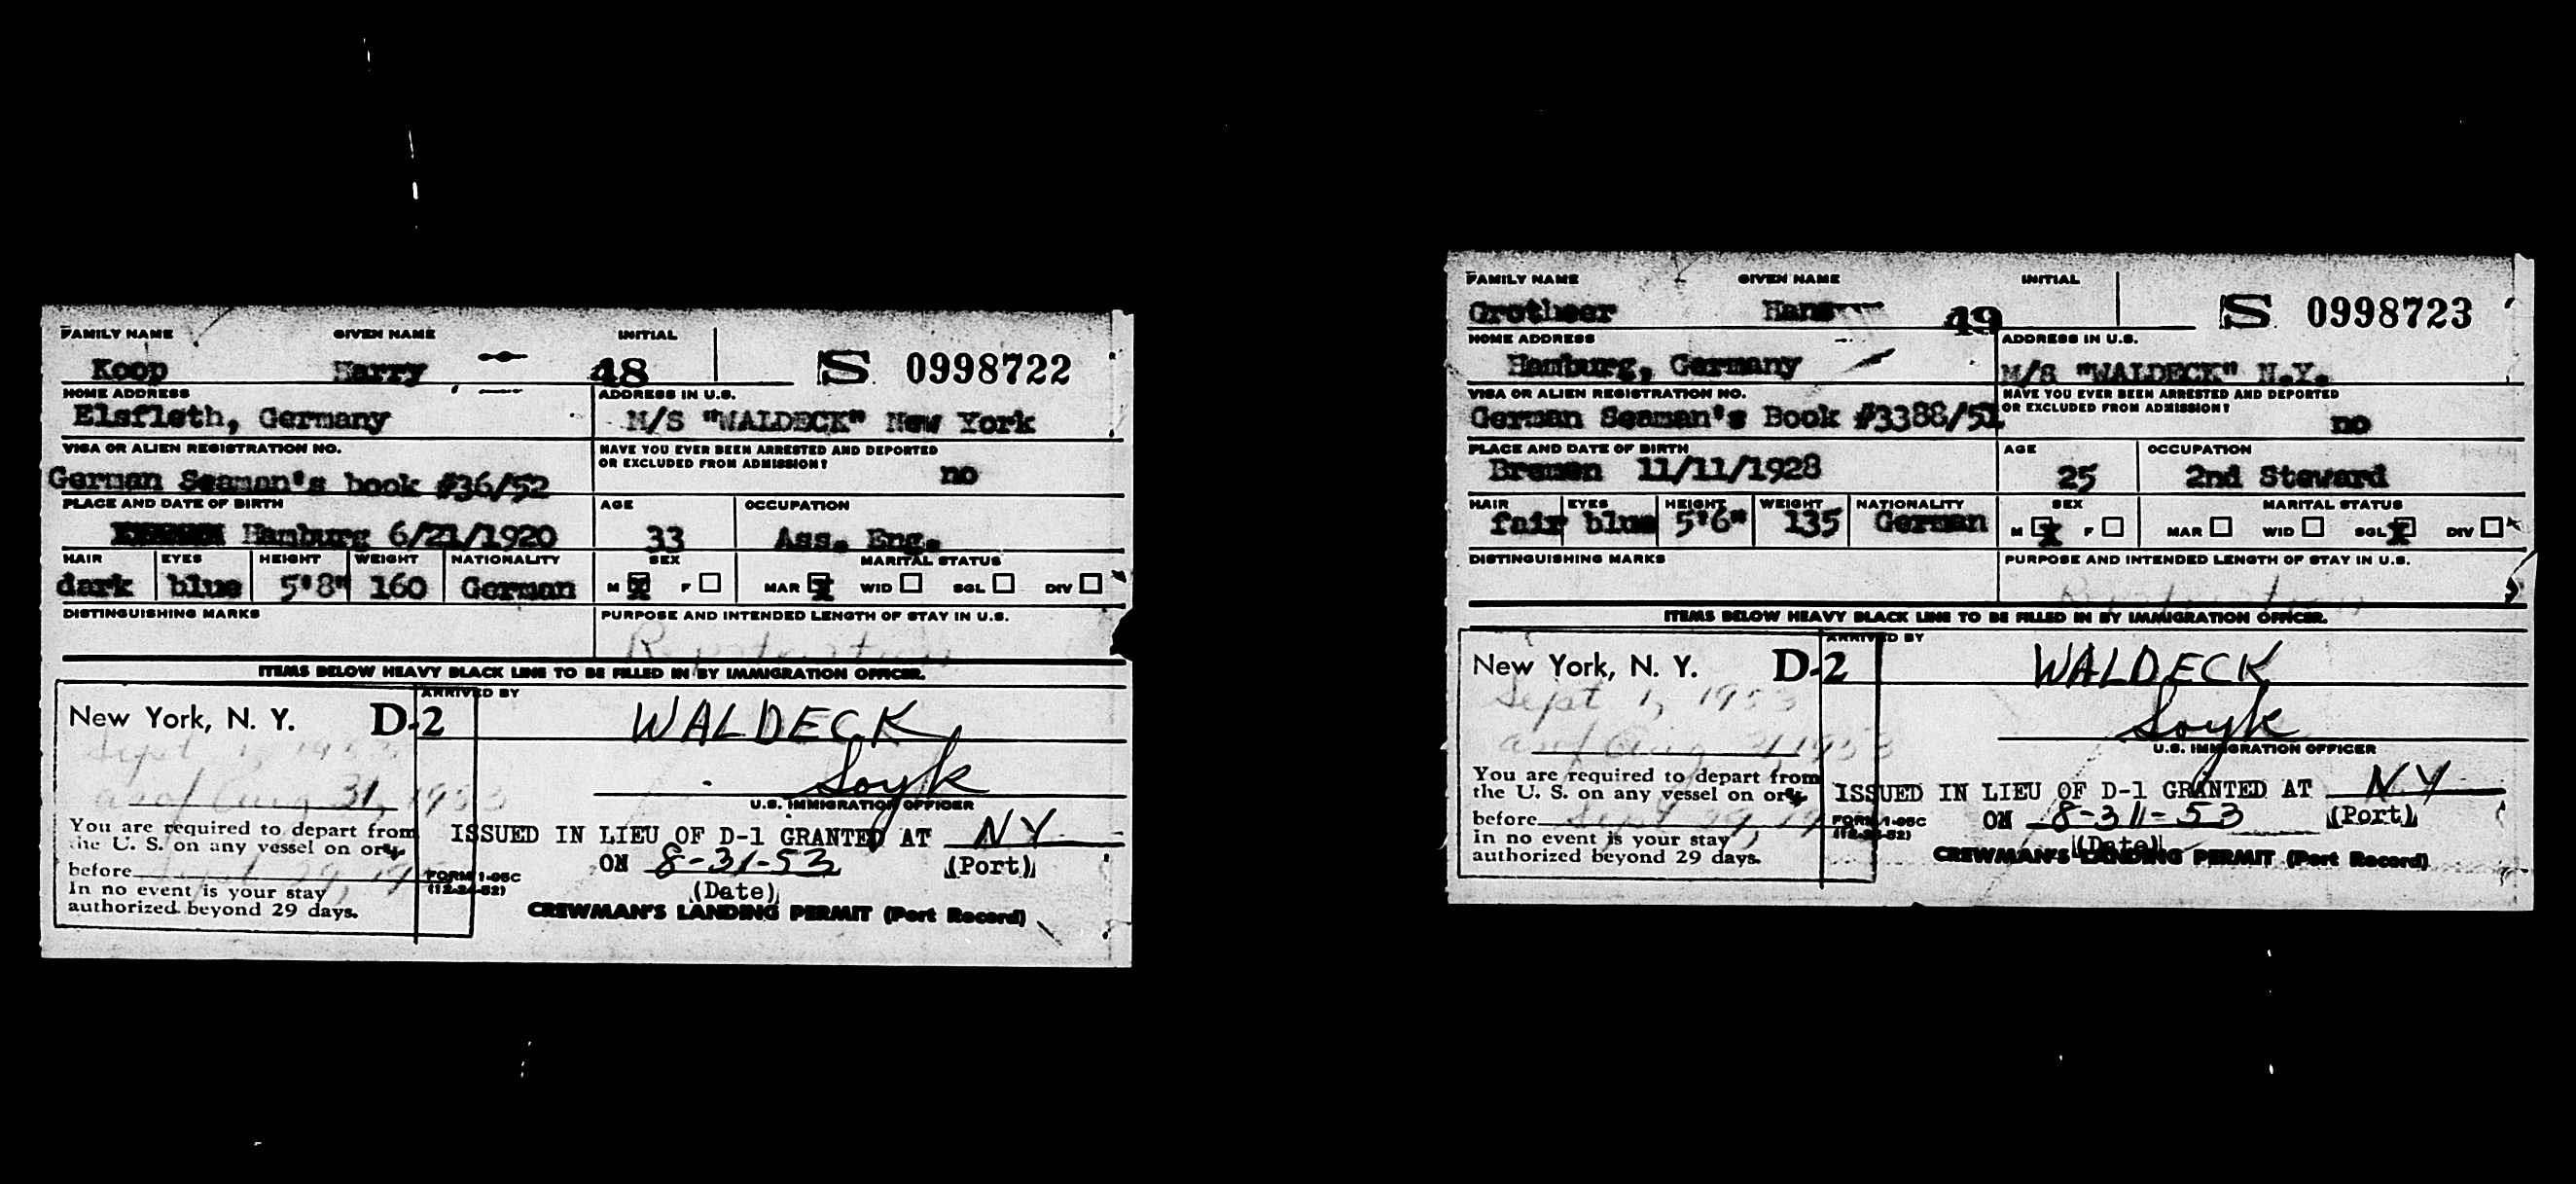 FAMILY NAME GIVEN NAME INITIAL
Koop Harry 48 S 0998722
HOME ADDRESS ADDRESS IN U.S.
Elsfleth, Germany M/S "WALDECK" New York
VISA OR ALIEN REGISTRATION NO. HAVE YOU EVER BEEN ARRESTED AND DEPORTED
OR EXCLUDED FROM ADMISSION?
German Seaman's book #36/52 no
PLACE AND DATE OF BIRTH AGE OCCUPATION
Hamburg 6/21/1920 33 Ass. Eng.
HAIR EYES HEIGHT WEIGHT NATIONALITY SEX MARITAL STATUS
dark blue 5'8" 160 German M X F MAR X WID SGL DIV
DISTINGUISHING MARKS PURPOSE AND INTENDED LENGTH OF STAY IN U.S.
ITEMS BELOW HEAVY BLACK LINE TO BE FILLED IN BY IMMIGRATION OFFICER.
ARRIVED BY
New York, N. Y. D-2 WALDECK
Sept 1, 1953
as of Aug 31, 1953 Soyk
U.S. IMMIGRATION OFFICER
You are required to depart from
the U. S. on any vessel on or
before Sept 29, 19
In no event is your stay
authorized beyond 29 days.
ISSUED IN LIEU OF D-1 GRANTED AT NY
ON 8-31-53 (Port)
(Date)
FORM I-95C
(12-24-52)
CREWMAN'S LANDING PERMIT (Port Record)
FAMILY NAME GIVEN NAME INITIAL
Grotheer Hans 49 S 0998723
HOME ADDRESS ADDRESS IN U.S.
Hamburg, Germany M/S "WALDECK" N.Y.
VISA OR ALIEN REGISTRATION NO. HAVE YOU EVER BEEN ARRESTED AND DEPORTED
OR EXCLUDED FROM ADMISSION?
German Seaman's Book #3388/51 no
PLACE AND DATE OF BIRTH AGE OCCUPATION
Bremen 11/11/1928 25 2nd Steward
HAIR EYES HEIGHT WEIGHT NATIONALITY SEX MARITAL STATUS
fair blue 5'6" 135 German M X F MAR WID SGL X DIV
DISTINGUISHING MARKS PURPOSE AND INTENDED LENGTH OF STAY IN U.S.
ITEMS BELOW HEAVY BLACK LINE TO BE FILLED IN BY IMMIGRATION OFFICER.
ARRIVED BY
New York, N. Y. D-2 WALDECK
Sept 1, 1953
as of Aug 31, 1953 Soyk
U.S. IMMIGRATION OFFICER
You are required to depart from
the U. S. on any vessel on or
before Sept 29, 19
In no event is your stay
authorized beyond 29 days.
ISSUED IN LIEU OF D-1 GRANTED AT NY
ON 8-31-53 (Port)
(Date)
FORM I-95C
(12-24-52)
CREWMAN'S LANDING PERMIT (Port Record)